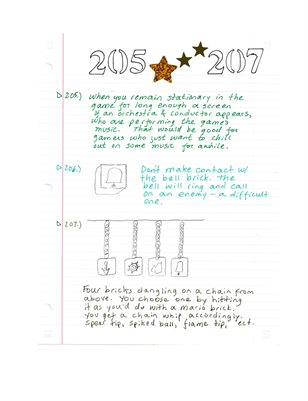 205 207
▷ 205.) When you remain stationary in the
game for long enough a screen
of an orchestra & conductor appears,
who are performing the game's
music. That would be good for
gamers who just want to chill
out on some music for awhile.
▷ 206.) Don't make contact w/
the bell brick. The
bell will ring and call
on an enemy – a difficult
one.
▷ 207.)
Four bricks dangling on a chain from
above. You choose one by hitting
it as you'd do with a mario brick.
You get a chain whip accordingly.
Spear tip, spiked ball, flame tip, ect.